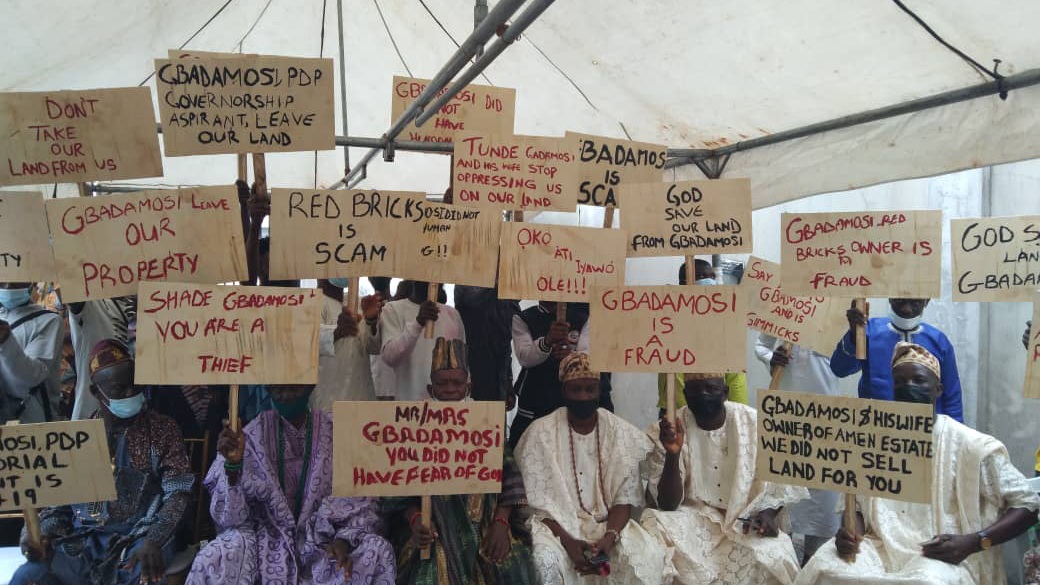 DONT
TAKE
OUR
LAND FROM US
GBADAMOSI, PDP
GOVERNORSHIP
ASPIRANT, LEAVE
OUR LAND
DID
NOT
HAVE
TUNDE GADAMOSI
AND HIS WIFE STOP
OPPRESSING US
ON OUR LAND
IS
GOD
SAVE
OUR LAND
FROM GBADAMOSI
GBADAMOSI LEAVE
OUR
PROPERTY
RED BRICKS
IS
SCAM
DID NOT
G!!
OKO ATI
IYAWÓ
OLE!!!
GBADAMOSI RED
BRICKS OWNER IS
A
FRAUD
GOD
LAN
GBADAM
SHADE GBADAMOSI
YOU ARE A
THIEF
GBADAMOSI
IS
A
FRAUD
AND IS
GIMMICKS
MR/MRS
GBADAMOSI
YOU DID NOT
HAVE FEAR OF GOD
GBADAMOSI & HIS WIFE
OWNER OF AMEN ESTATE
WE DID NOT SELL
LAND FOR YOU
MOSI, PDP
ORIAL
T IS
19